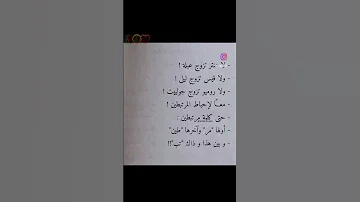 - لا عنتر تزوج عبلة !
- ولا قيس تزوج ليلى !
- ولا روميو تزوج جولييت !
- معـًا لإحباط المرتبطين !
- حتى كلمة مرتبطين :
- أولها "مر" وآخرها "طين"
- و بين هذا و ذاك "تب"!!